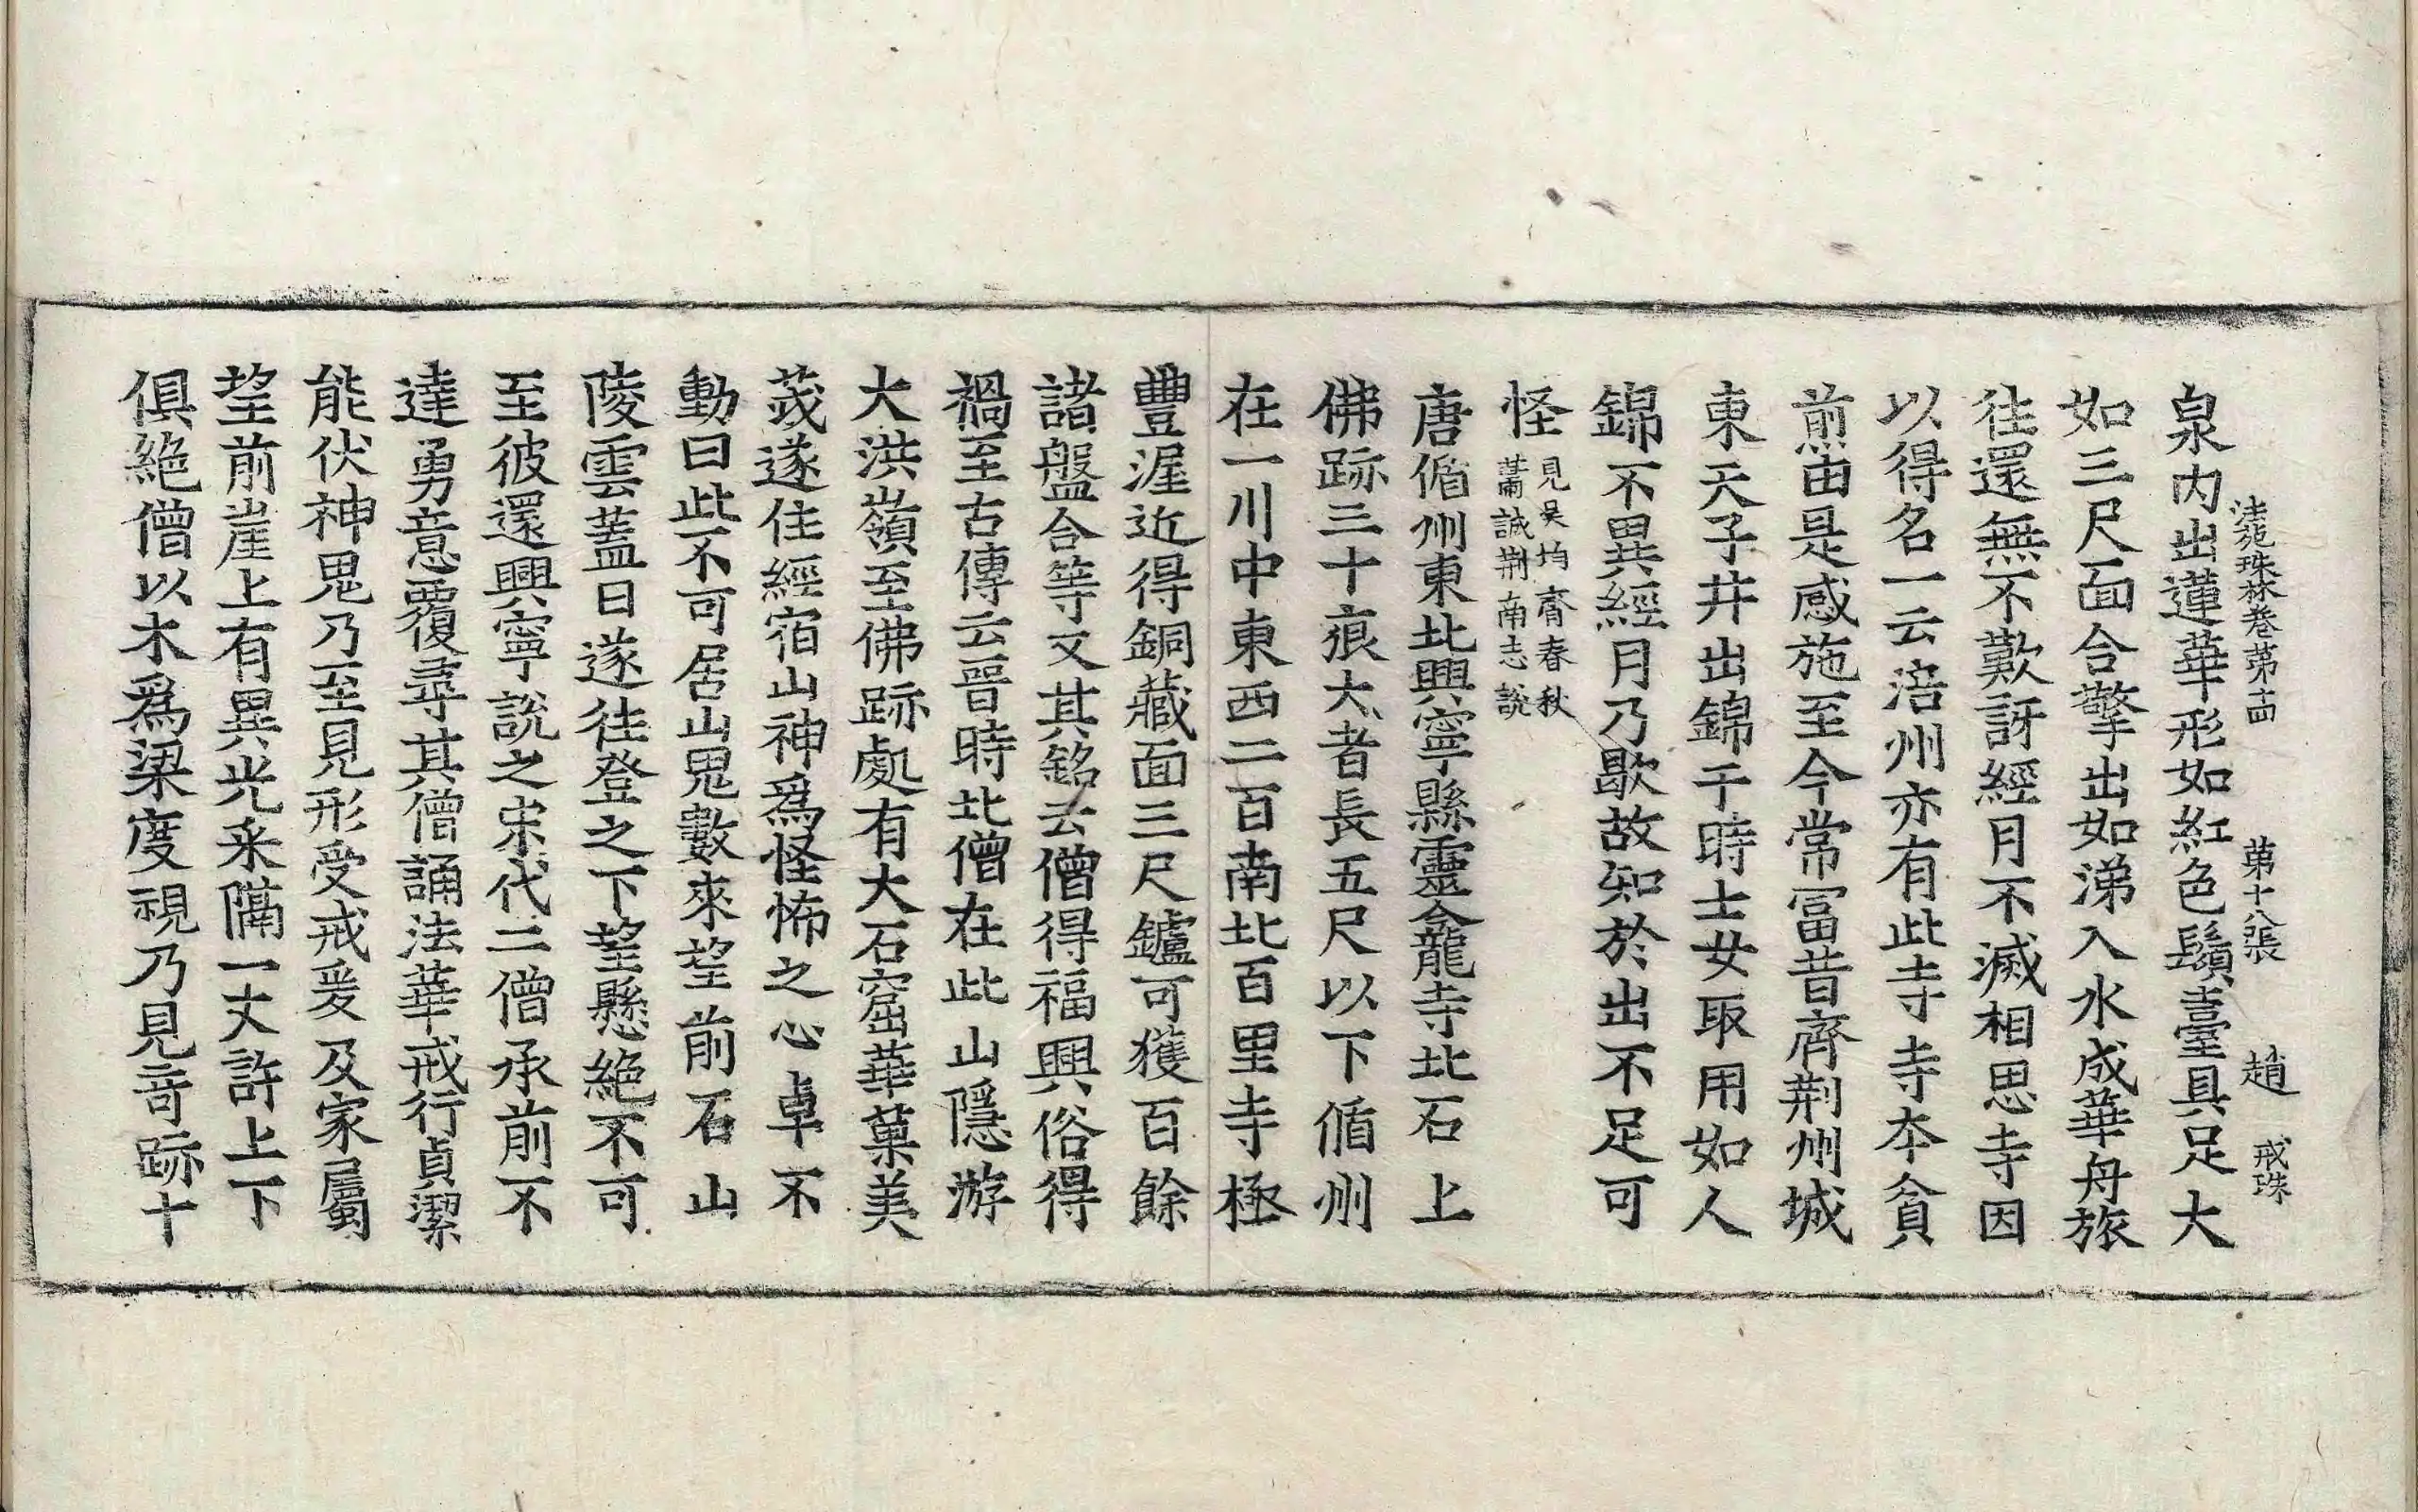 法苑珠林卷第十四 第十八張 趙 戒珠
泉内出蓮華形如紅色鬚臺具足大
如三尺面合擎出如涕入水成華舟旅
往還無不歎訝經月不滅相思寺因
以得名一云涪州亦有此寺寺本貧
煎由是感施至今常冨昔齊荆州城
東天子井出錦于時士女取用如人
錦不異經月乃歇故知於出不足可
怪見吴均齊春秋
蕭誠荆南志說
唐偱州東北興寧縣靈龕龍寺北石上
佛跡三十痕大者長五尺以下偱州
在一川中東西二百南北百里寺極
豐渥近得銅藏面三尺鑪可獲百餘
諸盤合等又其銘云僧得福興俗得
禍至古傳云晉時北僧在此山隱游
大洪嶺至佛跡處有大石窟華菓美
茂遂住經宿山神爲怪怖之心卓不
動曰此不可居山鬼數來望前石山
陵雲蓋日遂往登之下望懸絶不可
至彼還興寧說之宋代二僧承前不
達勇意覆尋其僧誦法華戒行貞潔
能伏神鬼乃至見形受戒爰及家屬
望前崖上有異光采隔一丈許上下
俱絶僧以木爲梁度視乃見竒跡十